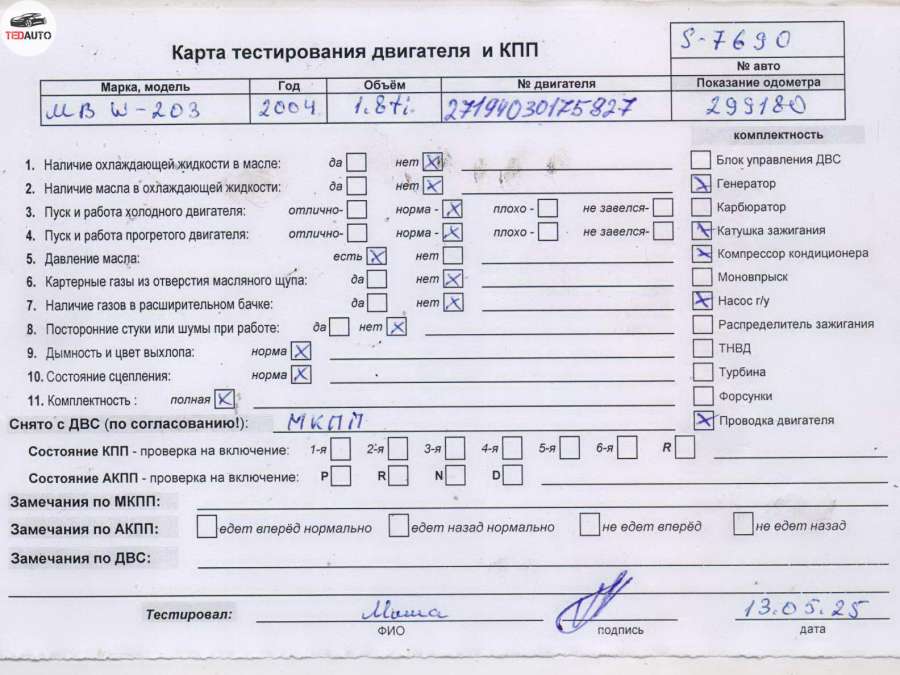 TEDAUTO
Карта тестирования двигателя и КПП
S-7690
№ авто
Марка, модель Год Объём № двигателя Показание одометра
MB W-203 2004 1.8ti. 27194030175827 299180
комплектность
1. Наличие охлаждающей жидкости в масле: да нет
Блок управления ДВС
2. Наличие масла в охлаждающей жидкости: да нет
Генератор
3. Пуск и работа холодного двигателя: отлично- норма - плохо - не завелся-
Карбюратор
4. Пуск и работа прогретого двигателя: отлично- норма - плохо - не завелся-
Катушка зажигания
5. Давление масла: есть нет
Компрессор кондиционера
6. Картерные газы из отверстия масляного щупа: да нет
Моновпрыск
7. Наличие газов в расширительном бачке: да нет
Насос г/у
8. Посторонние стуки или шумы при работе: да нет
Распределитель зажигания
9. Дымность и цвет выхлопа: норма
ТНВД
10. Состояние сцепления: норма
Турбина
11. Комплектность : полная
Форсунки
Снято с ДВС (по согласованию!): МКПП
Проводка двигателя
Состояние КПП - проверка на включение: 1-я 2-я 3-я 4-я 5-я 6-я R
Состояние АКПП - проверка на включение: P R N D
Замечания по МКПП:
Замечания по АКПП: едет вперёд нормально едет назад нормально не едет вперёд не едет назад
Замечания по ДВС:
Тестировал: Миша 13.05.25
ФИО подпись дата